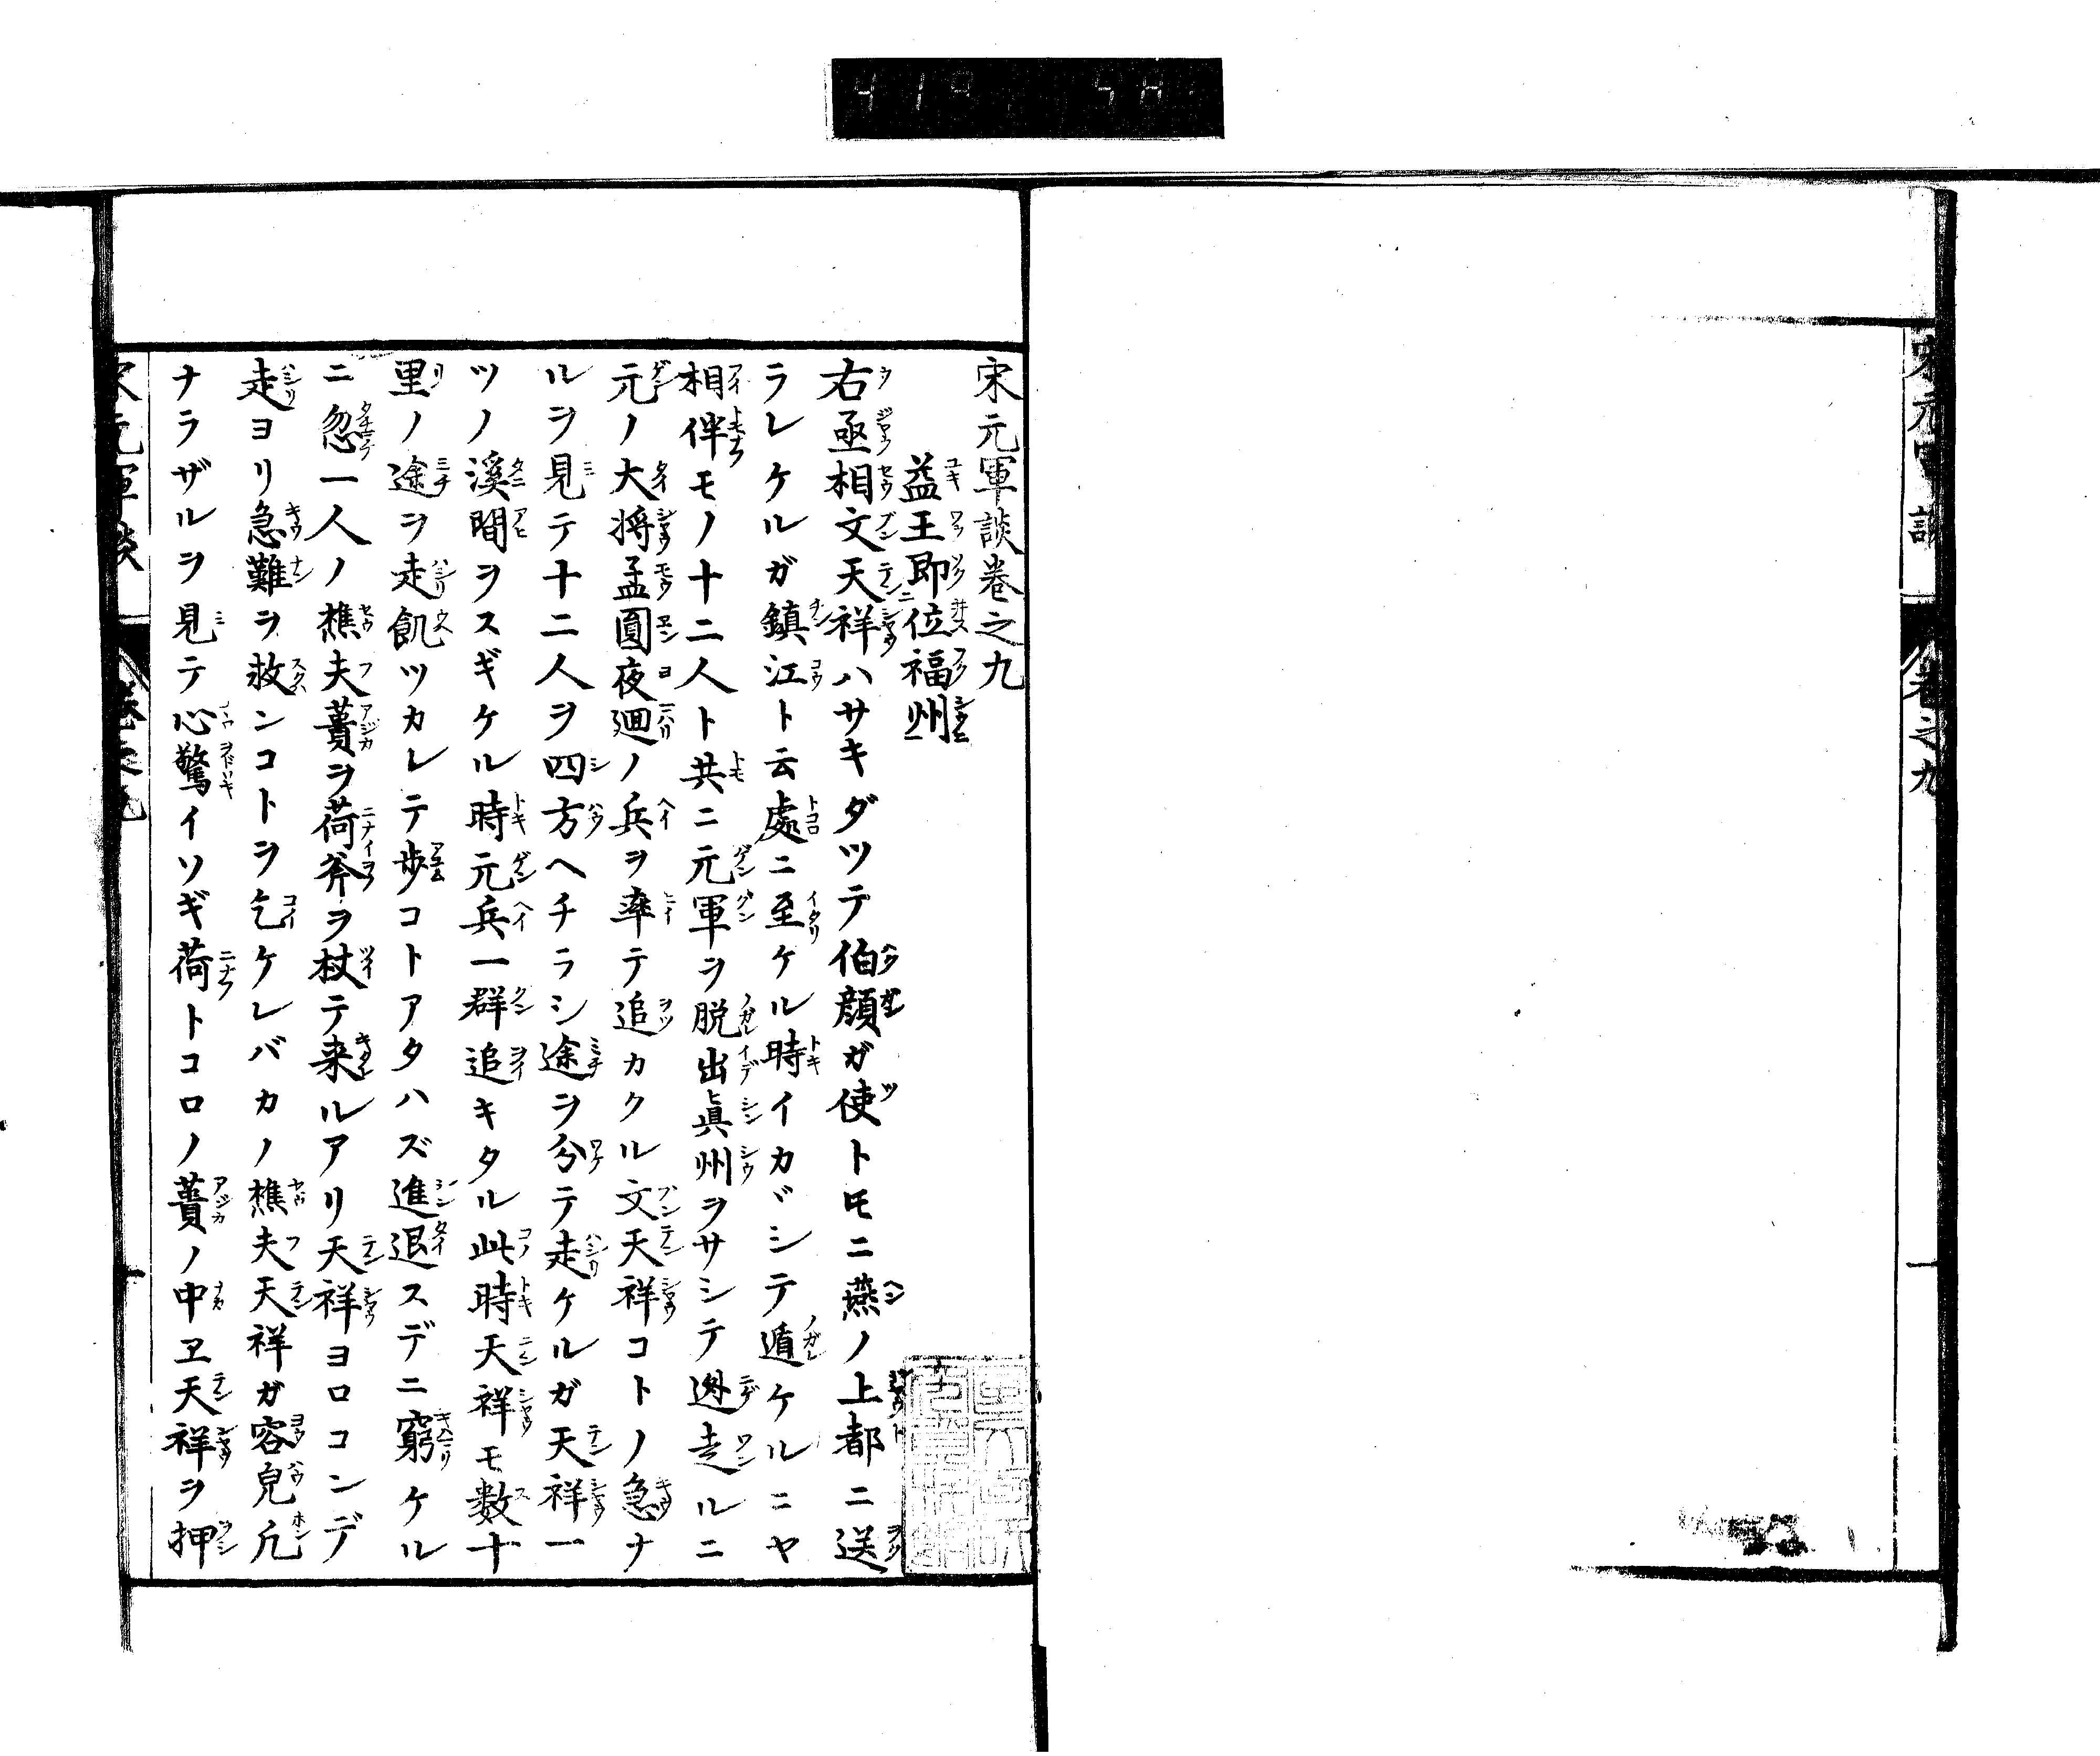 宋元軍談卷之九
益王即位福州
右亟相文天祥ハサキダツテ伯顔ガ使トモニ燕ノ上都ニ送
ラレケルガ鎮江ト云處ニ至ケル時イカヾシテ遁ケルニヤ
相伴モノ十二人ト共ニ元軍ヲ脱出眞州ヲサシテ迯走ルニ
元ノ大将孟圓夜廻ノ兵ヲ率テ追カクル文天祥コトノ急ナ
ルヲ見テ十二人ヲ四方ヘチラシ途ヲ分テ走ケルガ天祥一
ツノ溪間ヲスギケル時元兵一群追キタル此時天祥モ数十
里ノ途ヲ走飢ツカレテ歩コトアタハズ進退スデニ窮ケル
ニ忽一人ノ樵夫蕢ヲ荷斧ヲ杖テ来ルアリ天祥ヨロコンデ
走ヨリ急難ヲ救ンコトヲ乞ケレバカノ樵夫天祥ガ容皃凡
ナラザルヲ見テ心驚イソギ荷トコロノ蕢ノ中ヱ天祥ヲ押
宋元軍談 卷之九 一